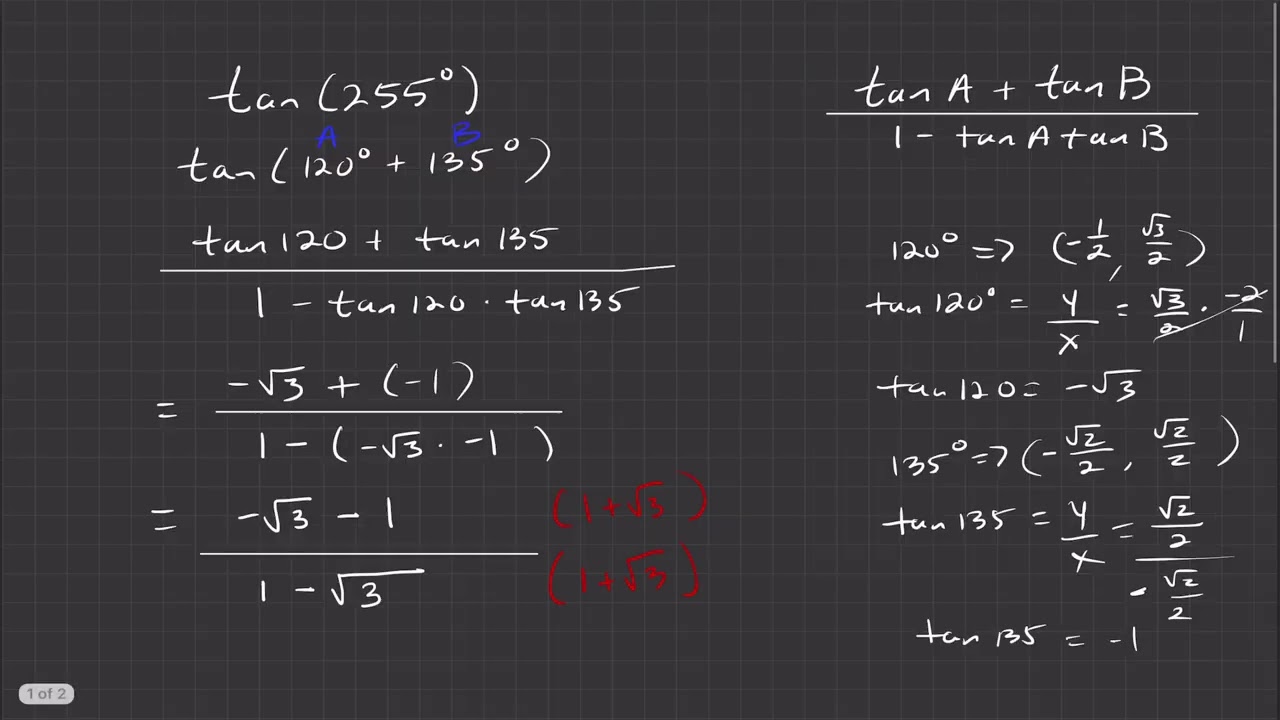 tan(255°)
A B
tan(120° + 135°)
tan 120 + tan 135
1 - tan 120 · tan 135
= -√3 + (-1)
1 - (-√3 · -1)
= -√3 - 1 (1+√3)
1 - √3 (1+√3)
tan A + tan B
1 - tan A tan B
120° => (-1/2, √3/2)
tan 120° = y/x = √3/2 · -2/1
tan 120 = -√3
135° => (-√2/2, √2/2)
tan 135 = y/x = √2/2
- √2/2
tan 135 = -1
1 of 2